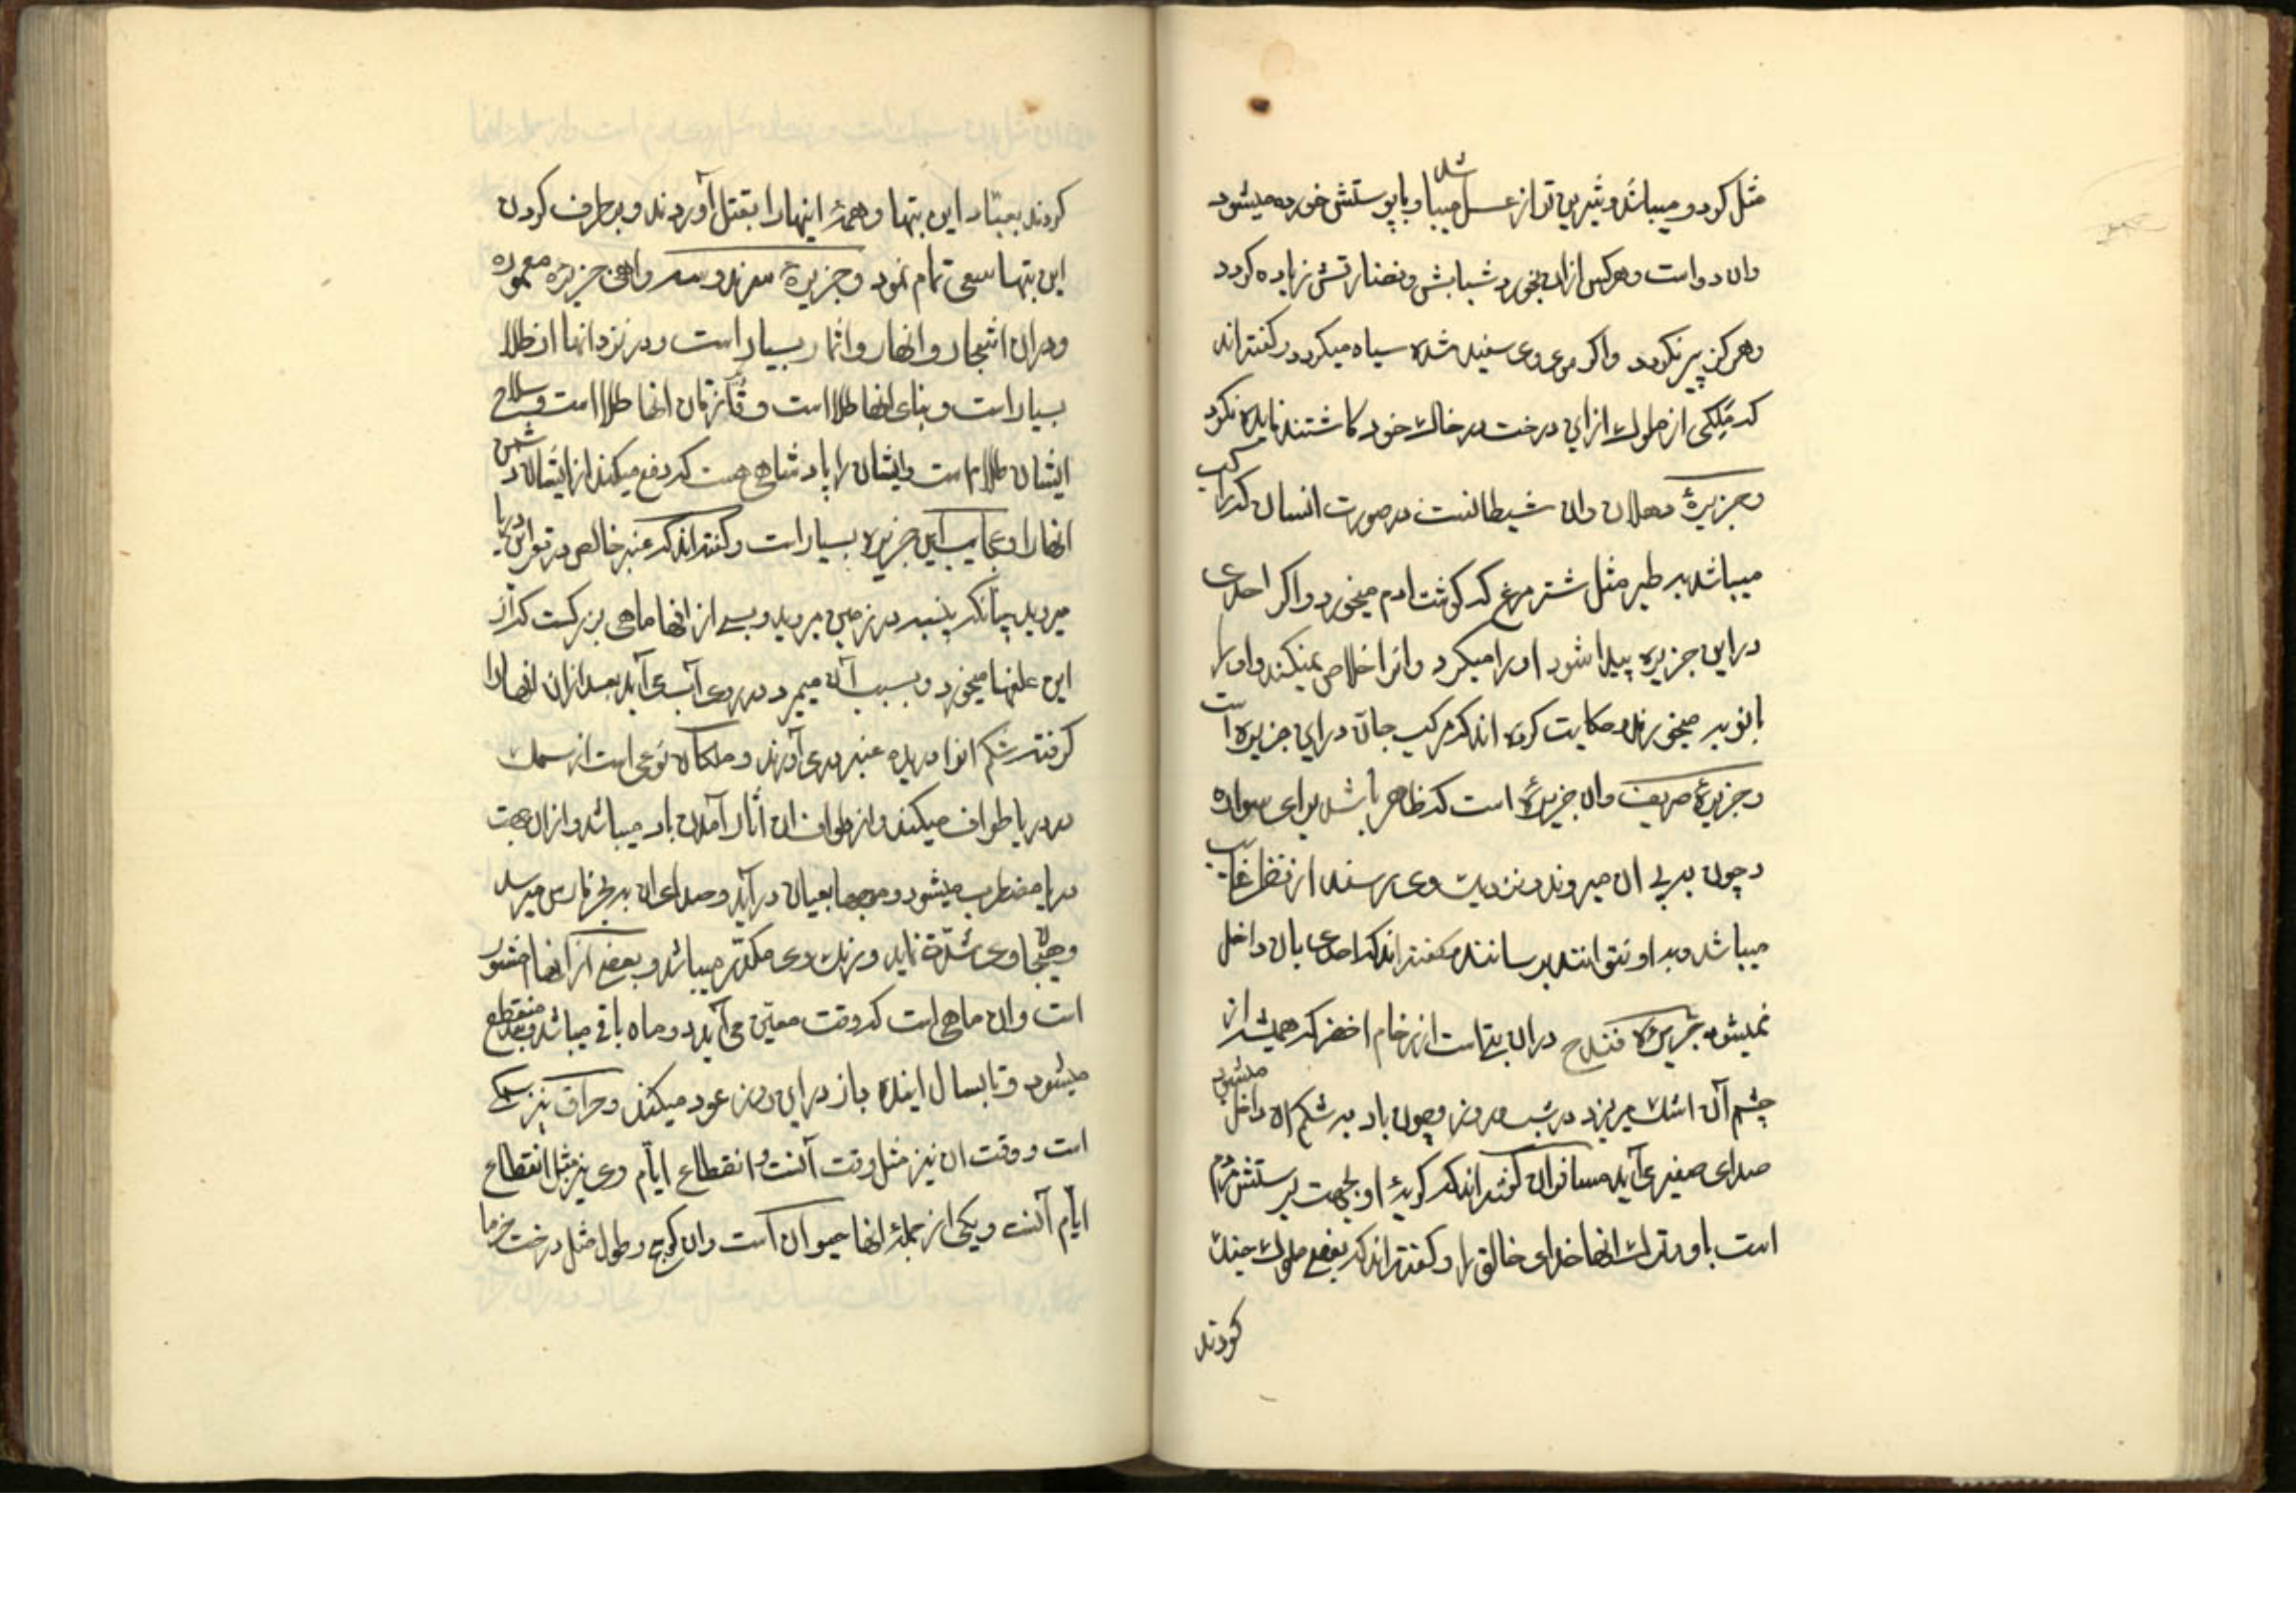 مثل کردو میباشد و شیرین تر از عسل میباشد و با پوستش خورده میشود
وان دواست و هرکس ازان بخورد شبابش و نضارتش زیاده کردد
و هرکز پیر نکردد و اکر موی وی سفید شده سیاه میکردد و کفته‌اند
که ملکی از ملوک از این درخت در خاک خود کاشتند فایده نکرد
و جزیرهٔ دهلان وان شیطانست در صورت انسان که راکب
میباشد بر طیر مثل شتر مرغ که کوشت ادم میخورد و اکر احدی
در این جزیره پیدا شود او را میکیرد وانرا خلاص نمیکند واورا
میخورند و حکایت کرده اند که مرکب جان در این جزیره است
و جزیرهٔ صریف وان جزیرهٔ است که ظاهر باشد برای سواره
و چون به پی ان میروند و نزدیک وی رسند از نظر غایب
میباشد و به او نتوانند برسانند و کفته‌اند که احدی بان داخل
نمیشود جزیرهٔ فندج دران بتی است از رخام اخضر که همیشه از
چشم آن اشک میریزد در شب و روز و چون باد به شکم او داخل میشود
صدای صفیر می‌آید مسافران کفته‌اند که کریهٔ او بجهت پرستش مردم
است باو و ترک انها خدای خالق را و کفته‌اند که بعضی ملوک جنک
کردند
کردند این بتها و همهٔ اینها را بقتل آوردند و بر طرف کردن
این بتها سعی تمام نمود و جزیرهٔ جزیرهٔ معموره
و دران اشجار و انهار و اثمار بسیار است و در نزد انها از طلا
بسیار است و بنای انها طلا است و انها طلا است و سلاح
ایشان طلا است و ایشان را پادشاهی هست که دفع میکند از ایشان دشمن
انها را و عجایب این جزیره بسیار است و کفته‌اند که عنبر خالص در قعر این دریا
میروید چنانکه پنبه در زمین میروید و بسی از انها ماهی بزرکست که از
این علفها میخورد و بسبب آن میمیرد و در روی آب می‌آید بعد ازان انها را
کرفته شکم انرا دریده عنبر در می‌آورند و ملکان نوعی است از سمک
در دریا طواف میکند و از طواف ان آثار آمدن باد میباشد و ازان جهت
دریا مضطرب میشود و موجها بهیجان در آید و صدای ان به بحر فارس میرسد
و هیجان وی شدّت نماید و رنک وی مکدّر میباشد و بعضی از انها
است وان ماهی است که وقت معیّن می‌آید دو ماه باقی میباشد و بعد منقطع
میشود و تا بسال اینده باز در این روز عود میکند و حراف نیز سمکی
است و وقت ان نیز مثل وقت آنست و انقطاع ایّام وی نیز مثل انقطاع
ایّام آنست و یکی از جملهٔ انها حیوان است وان و طول مثل درخت خرما